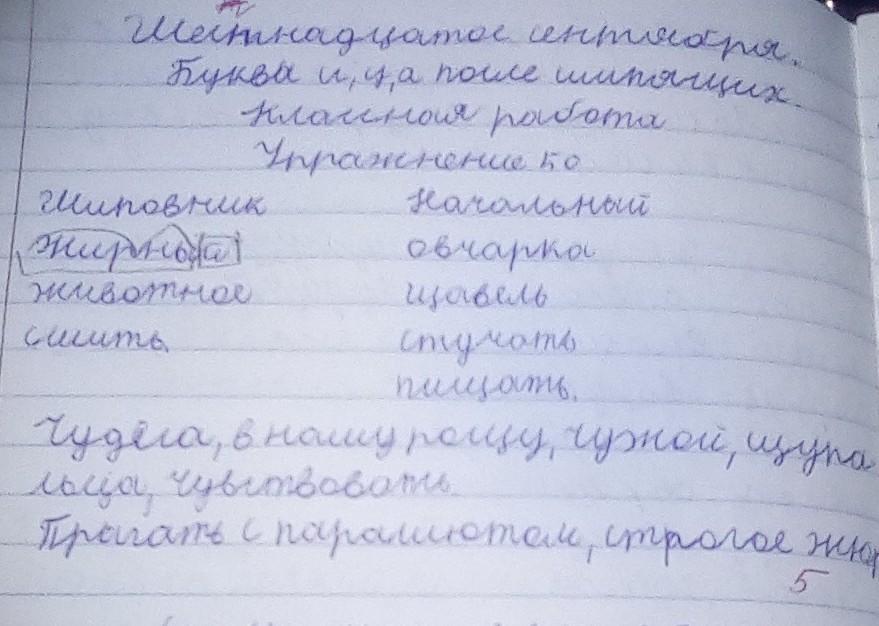 Шестнадцатое сентября.
Буквы и, у, а после шипящих.
Классная работа
Упражнение 50
Шиповник Начальный
жирный овчарка
животное щавель
сшить стучать
пищать.
Чудеса, в нашу рощу, чужой, щупа
льца, чувствовать.
Прыгать с парашютом, строгое жюр
5